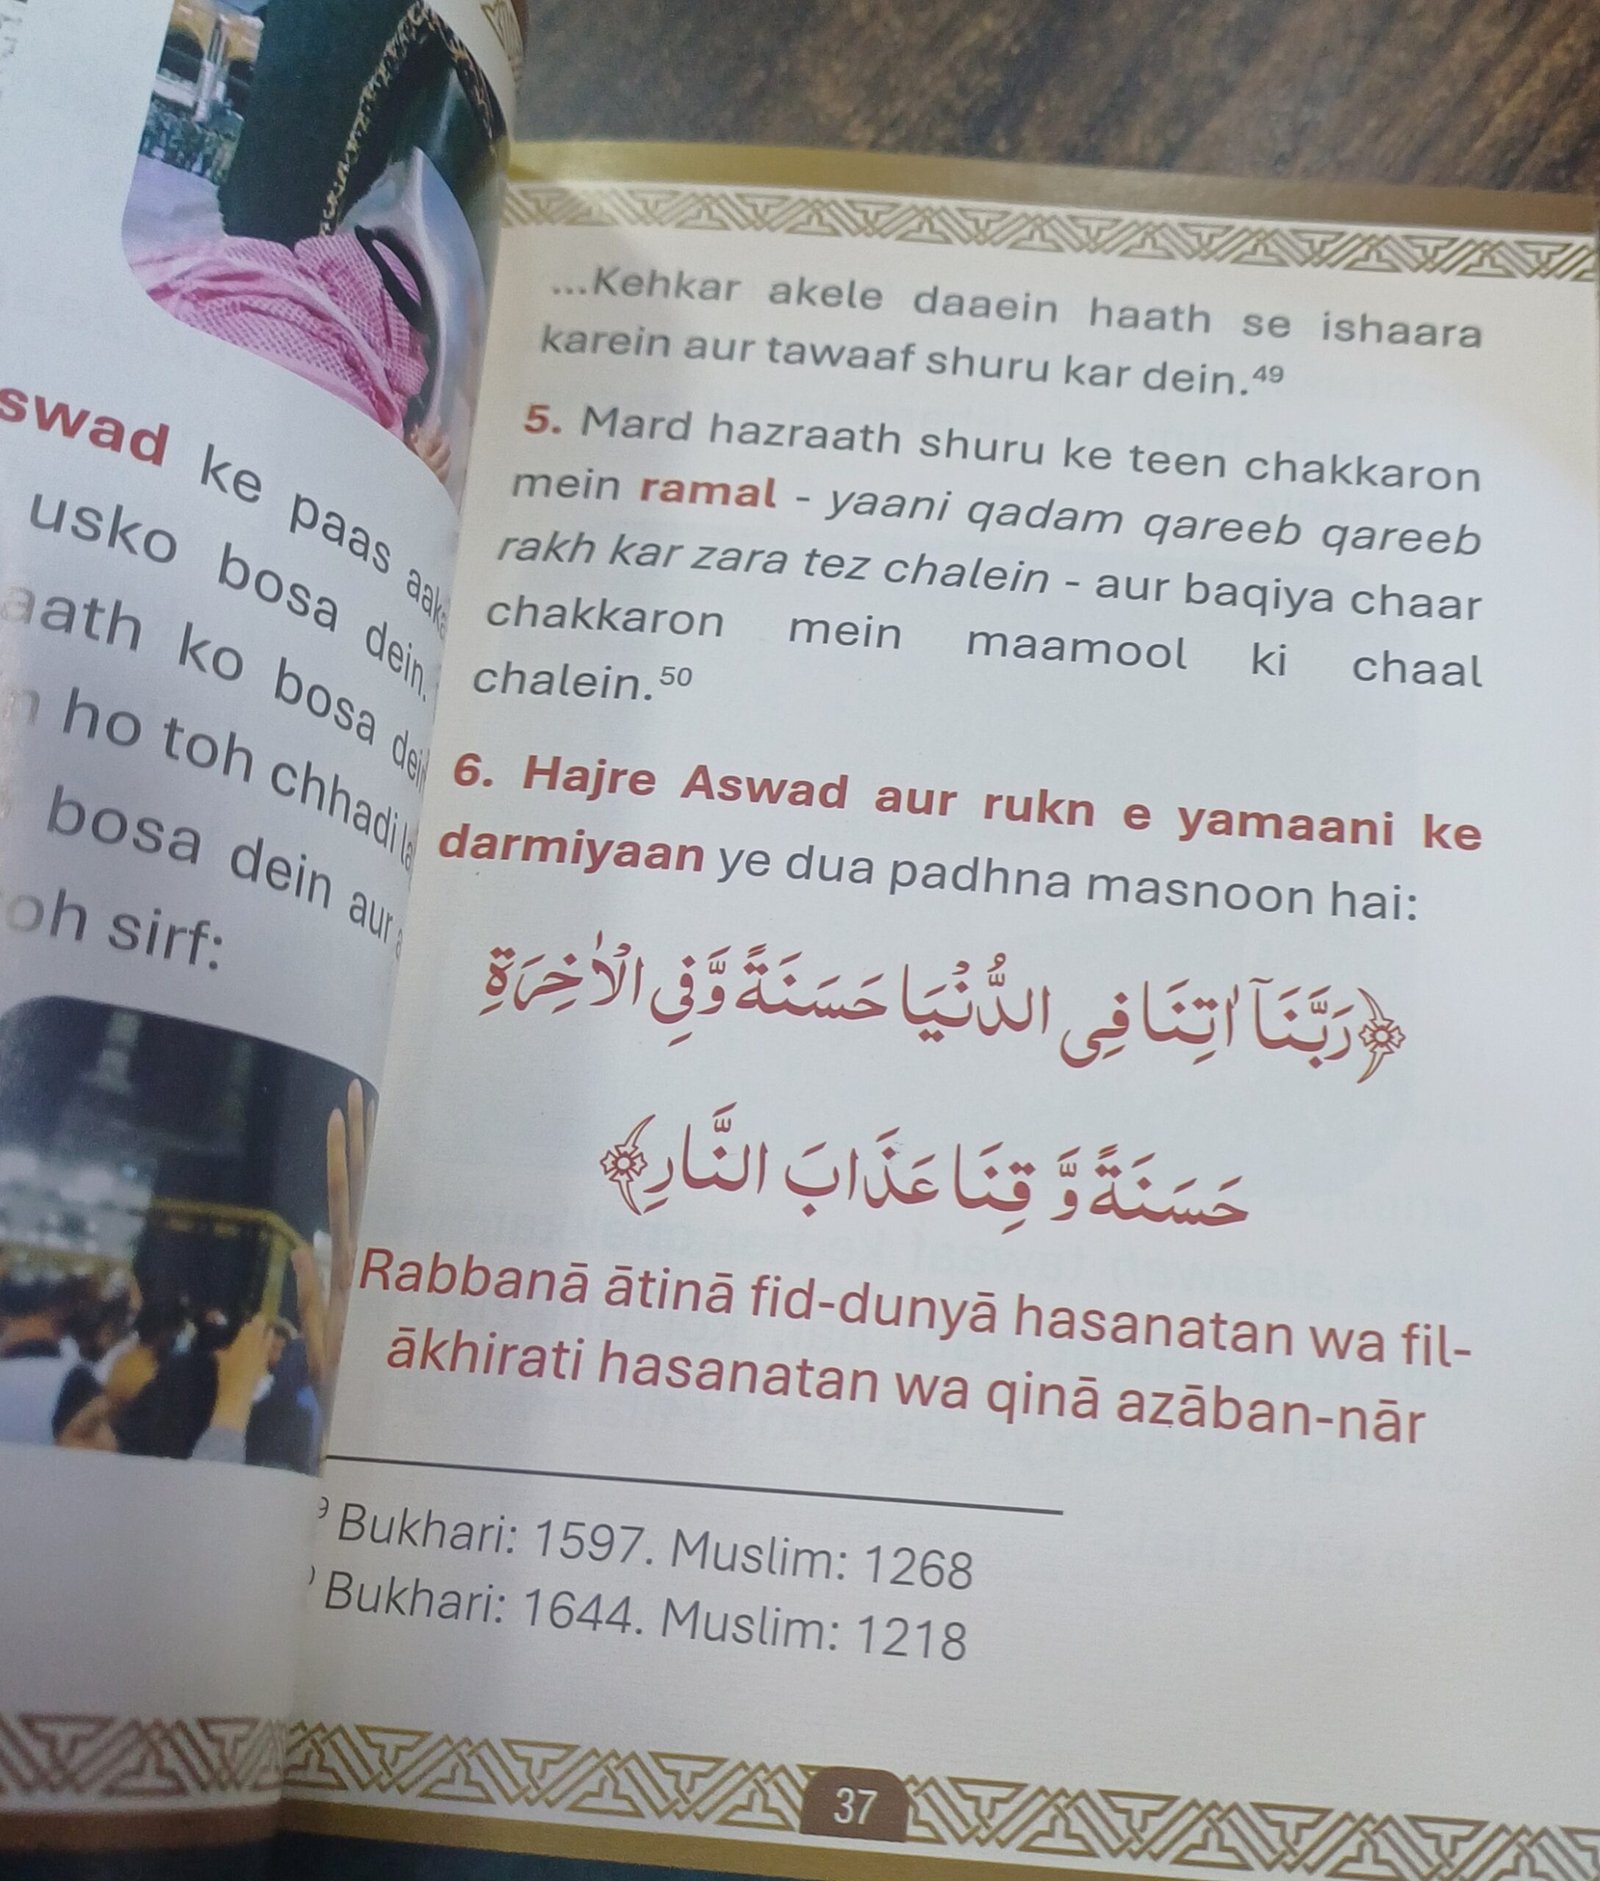 swad ke paas
usko bosa dein.
aath ko bosa
ho toh chhadi
bosa dein aur
oh sirf:
...Kehkar akele daaein haath se ishaara
karein aur tawaaf shuru kar dein.⁴⁹
5. Mard hazraath shuru ke teen chakkaron
mein ramal - yaani qadam qareeb qareeb
rakh kar zara tez chalein - aur baqiya chaar
chakkaron mein maamool ki chaal
chalein.⁵⁰
6. Hajre Aswad aur rukn e yamaani ke
darmiyaan ye dua padhna masnoon hai:
﴿رَبَّنَآ اٰتِنَا فِی الدُّنْیَا حَسَنَةً وَّفِی الْاٰخِرَةِ
حَسَنَةً وَّ قِنَا عَذَابَ النَّارِ﴾
Rabbanā ātinā fid-dunyā hasanatan wa fil-
ākhirati hasanatan wa qinā azāban-nār
⁹ Bukhari: 1597. Muslim: 1268
Bukhari: 1644. Muslim: 1218
37